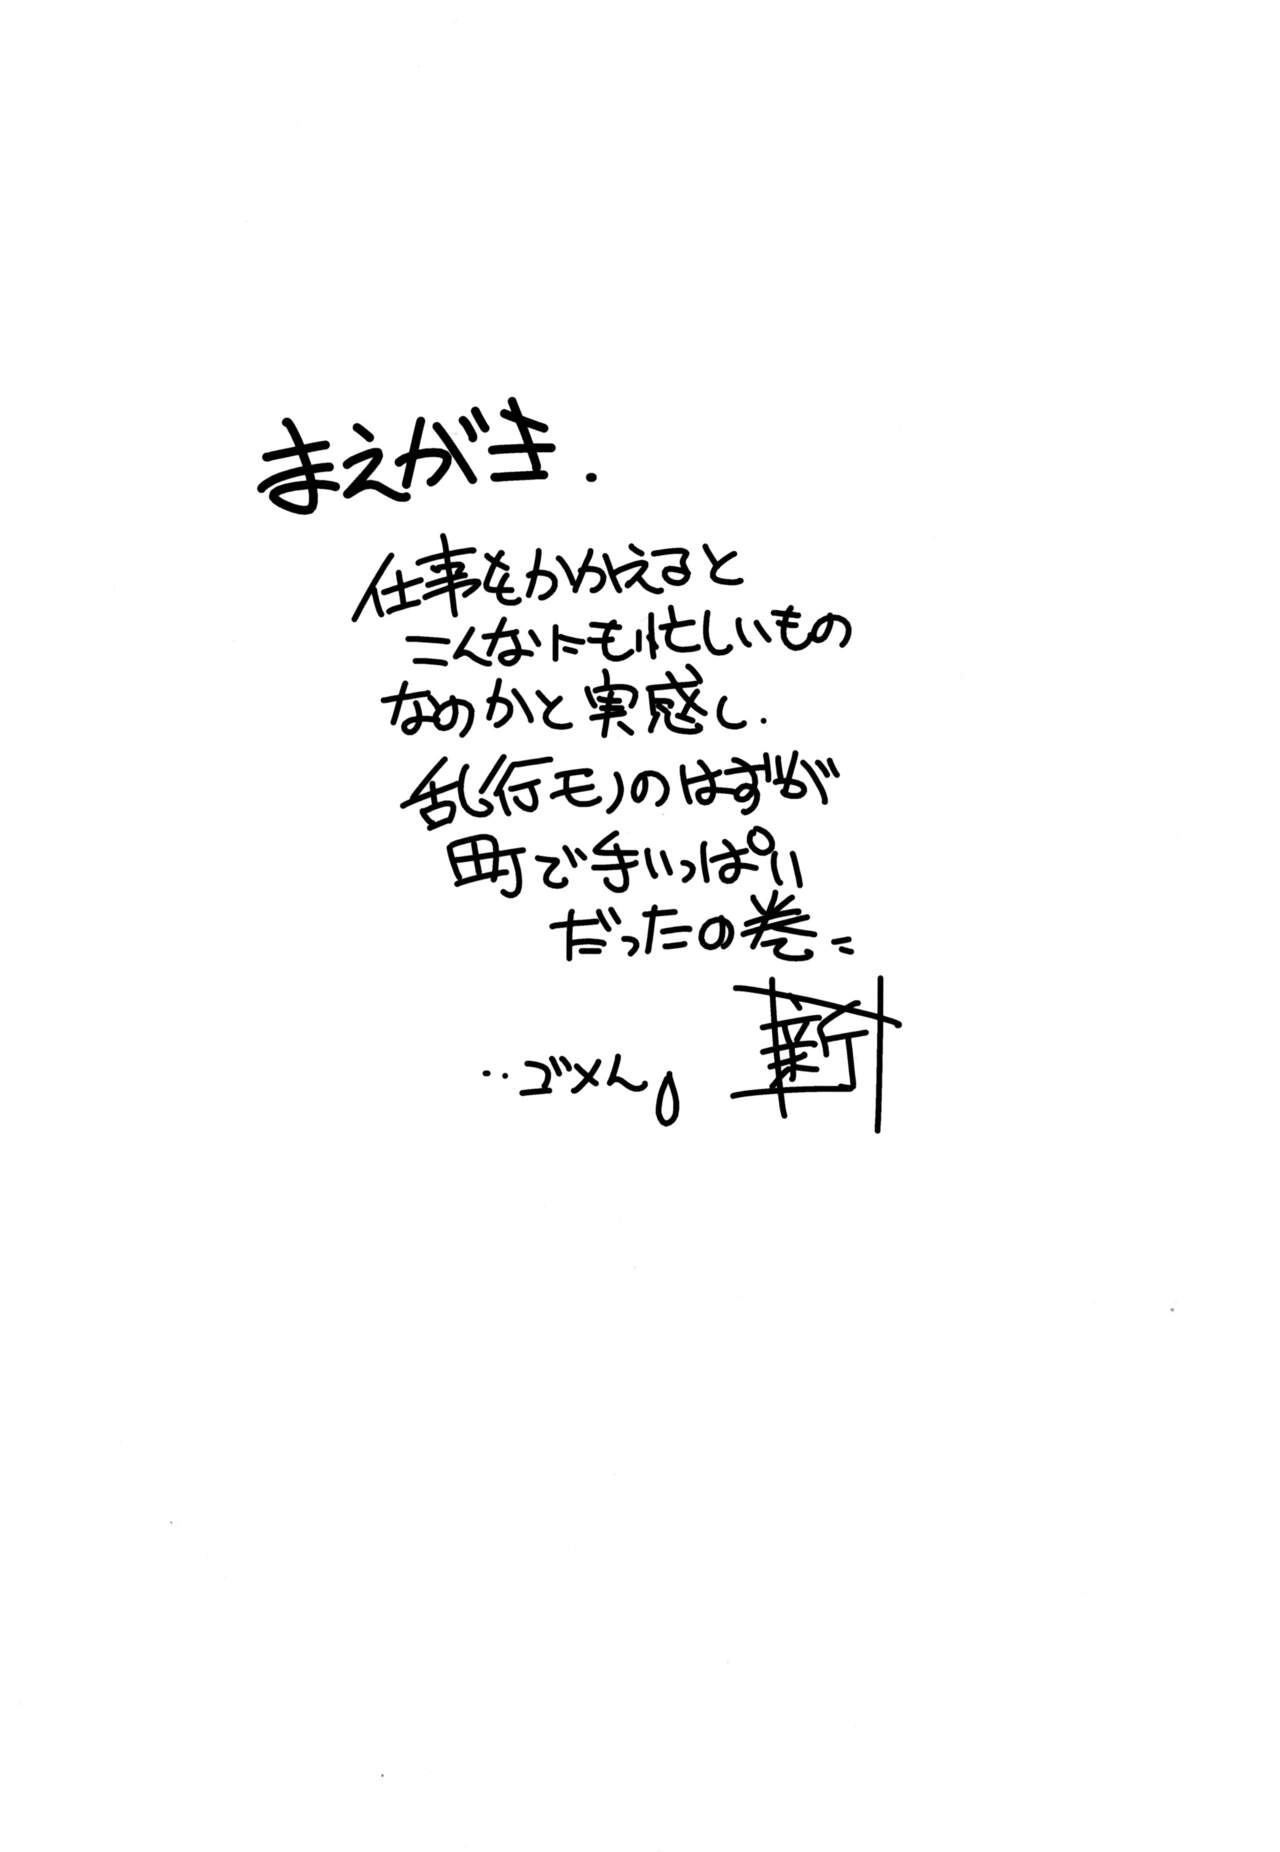 まえがき.
仕事をかかえると
こんなにも忙しいもの
なのかと実感し.
乱行モノのはずが
町で手いっぱい
だったの巻=
‥ゴメん。
新